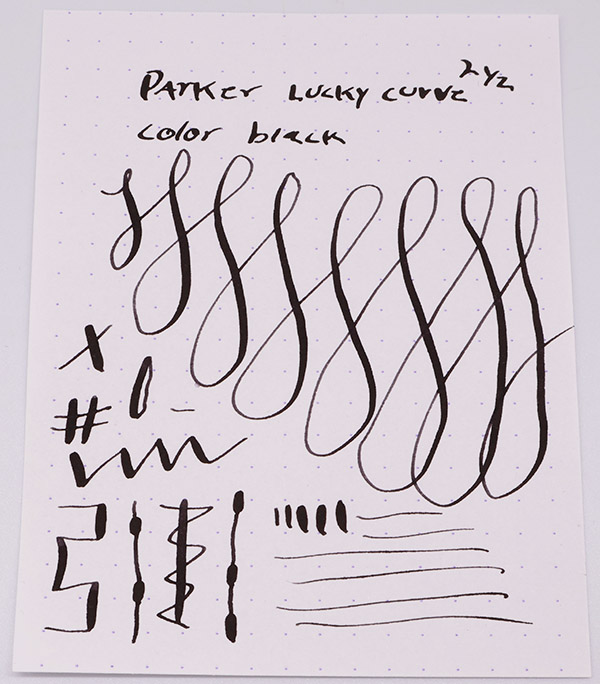 Parker Lucky curve 2 1/2
color black
x
#